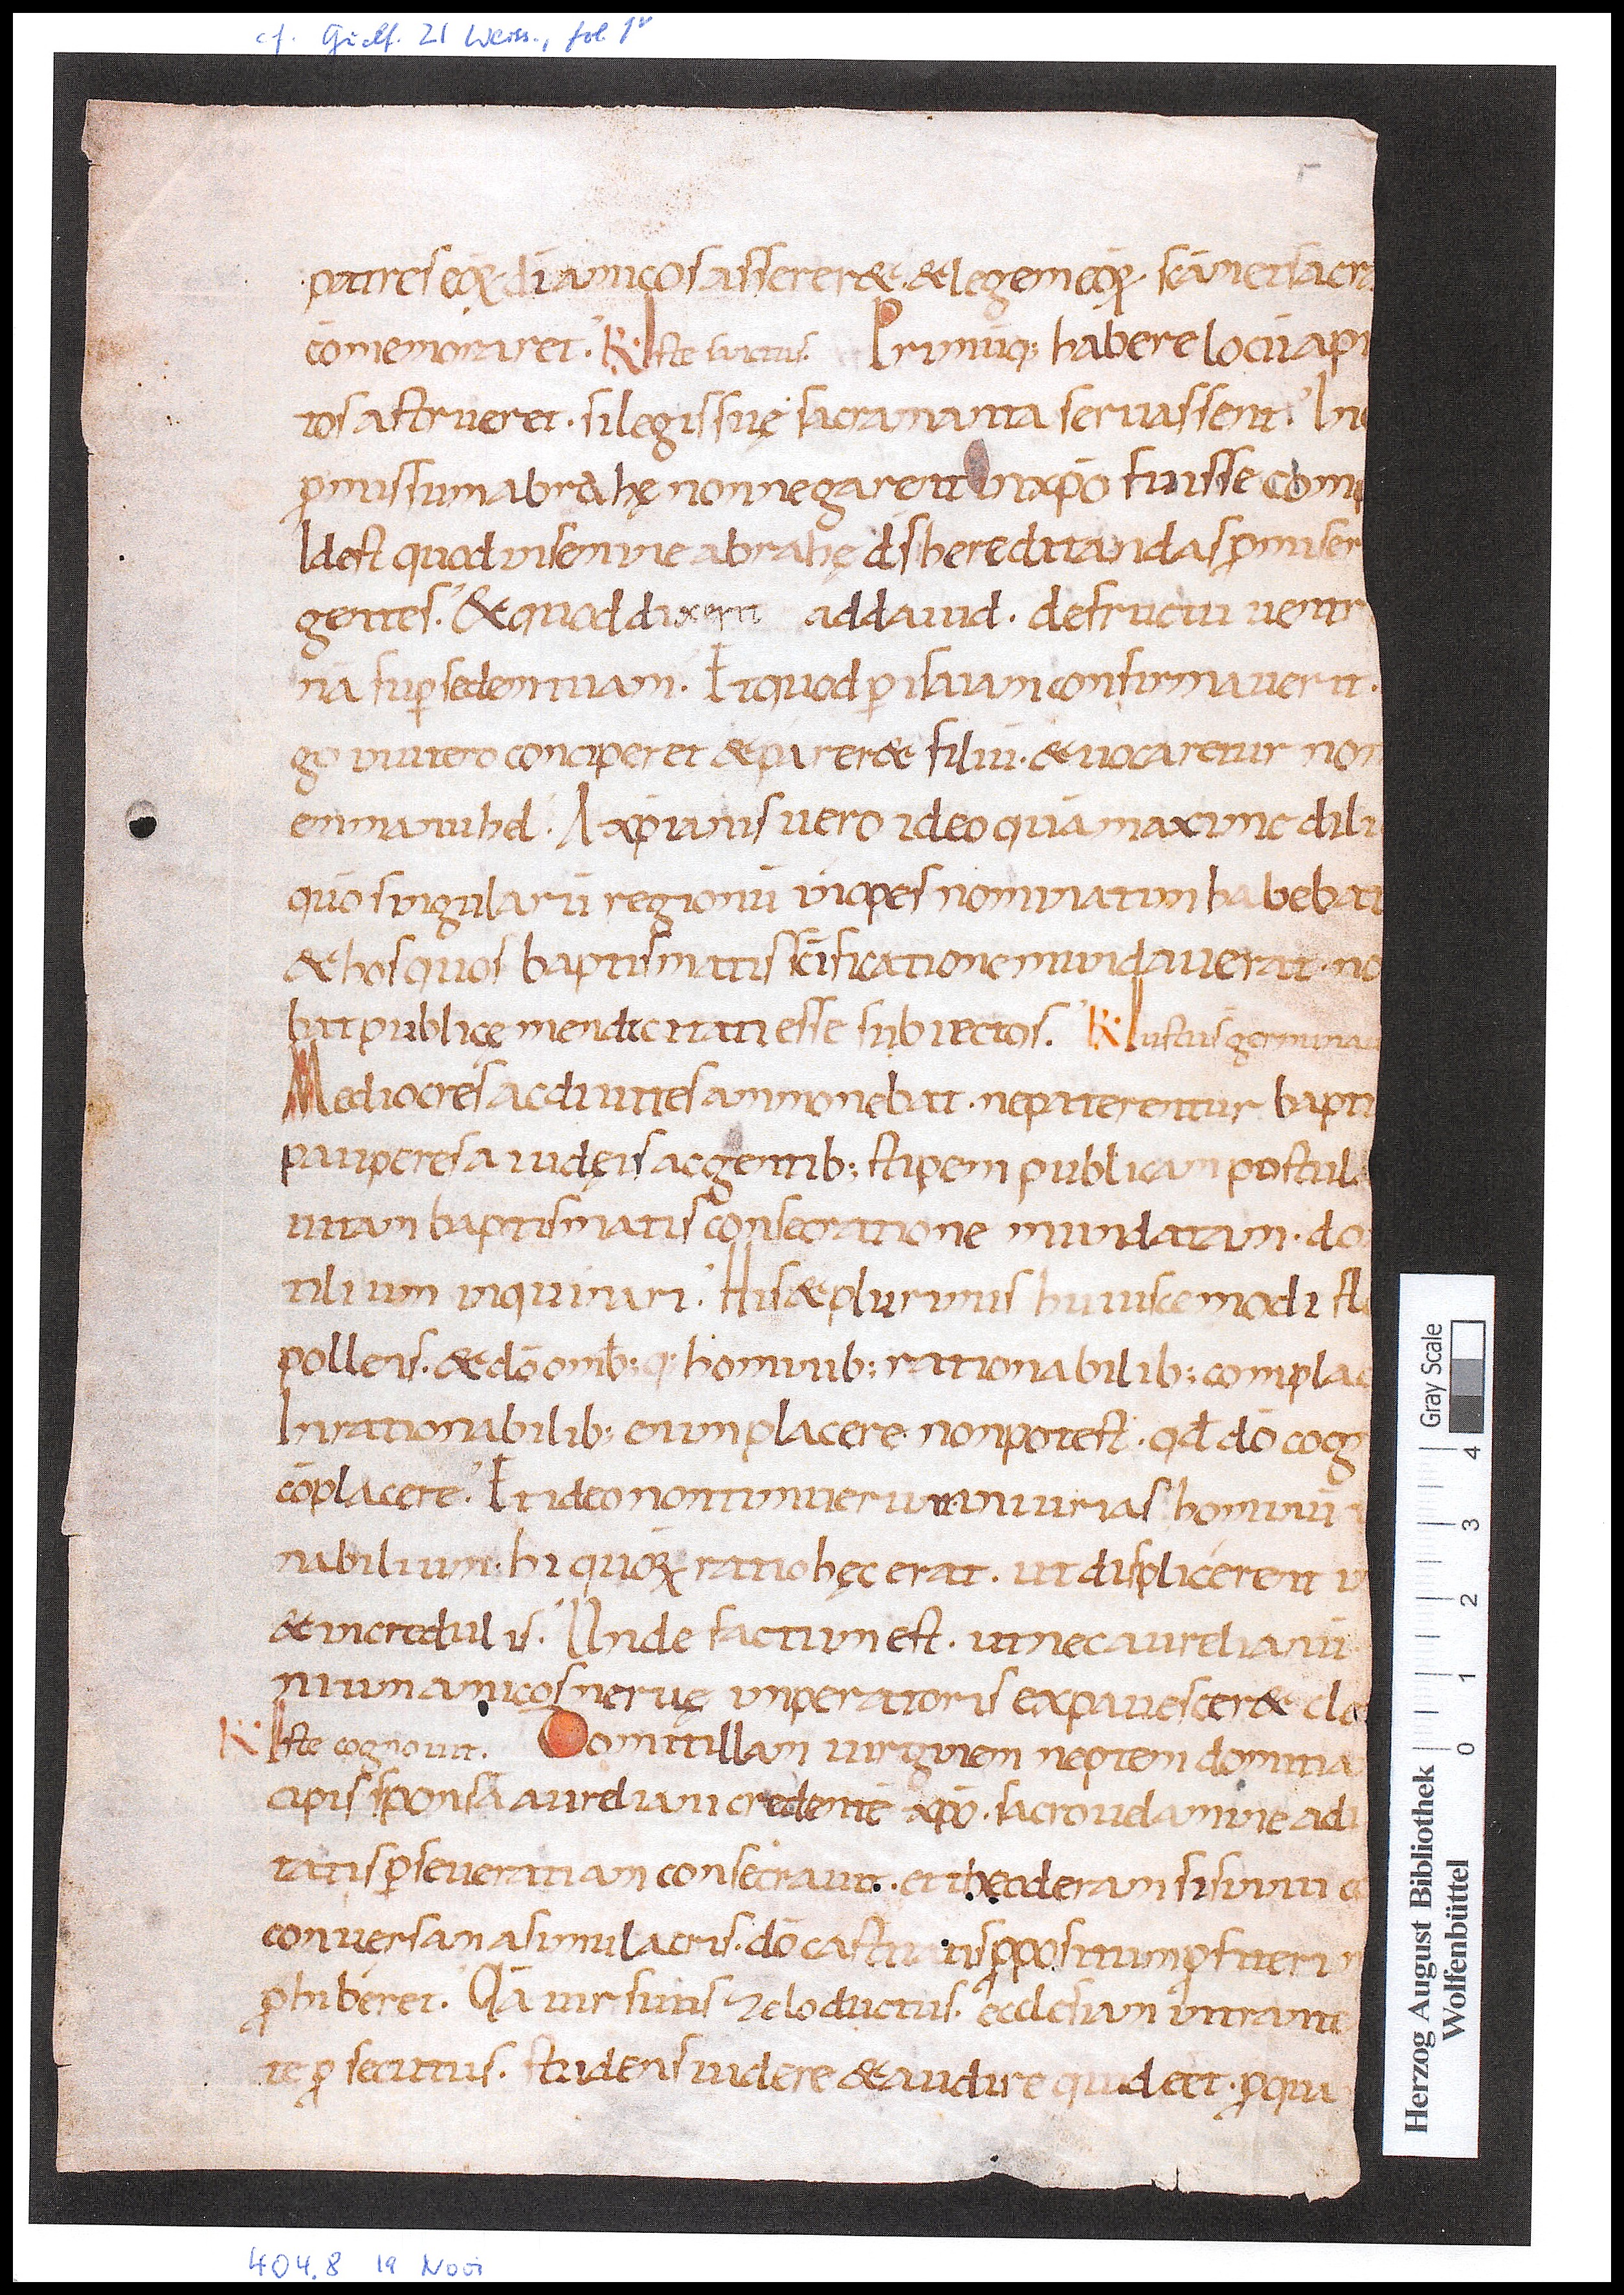 cf. Guelf. 21 Weiss., fol. 1v
patres eoꝝ di amicos assereret & legem eoꝝ scām et sacra
cōmemoraret. R. Iste sanctus. Primūq; habere locū apu
tos astrueret. si legis suę sacramanta seruassent. In
ꝓmissum abrahę non negarent in xp̄o fuisse comp
Idest quod in semine abrahę ds̄ hereditandas ꝓmiser
gentes. & quod dixerit ad dauid. de fructu uentr
nā suꝑ sedem tuam. Et quod ꝑ isaiam confirmauerit.
go in utero conciperet & pareret filiū. & uocaretur nom
emmanuhel. A xp̄ianis uero ideo quā maxime dili
quō singularū regionū inopes nominatim habebat
& hos quos baptismatis sc̄ificatione mundauerat. no
bat publicę mendicitati esse subiectos. R. Iustus germina
Mediocres ac diuites ammonebat. ne paterentur bapti
pauperes a iudęis ac gentib; stipem publicam postula
uitam baptismatis consecratione mundatam. do
tilium inquinari. His & plurimis huiuscemodi
pollens. & dō omīb; q; hominib; rationabilib; complac
Inrationabilib; enim placere non potest. qd̄ dō cog
cōplacere. Et ideo non timuerunt iniurias hominū
nabilium. hi quoꝝ ratio hęc erat. ut displicerent in
& incredulis. Unde factum est. ut nec aurelianū
nium amicos neruę imperatoris expauesceret cle
R. Iste cognouit. Domitillam uirginem neptem domitia
cipis sponsā aureliani credentē xp̄o. sacro uelamine ad
tatis ꝑseuerantiam consecrauit. et theoderam sisinnii
conuersam a simulacris. dō castitatis ꝓpositum
ꝓhiberet. Quā uir suus zelo ductus. ecclesiam intrante
te ꝑsecutus. studens uidere & audire quid eēt. ꝓ qu
Gray Scale
4
3
2
1
0
Herzog August Bibliothek
Wolfenbüttel
404.8 19 Novi